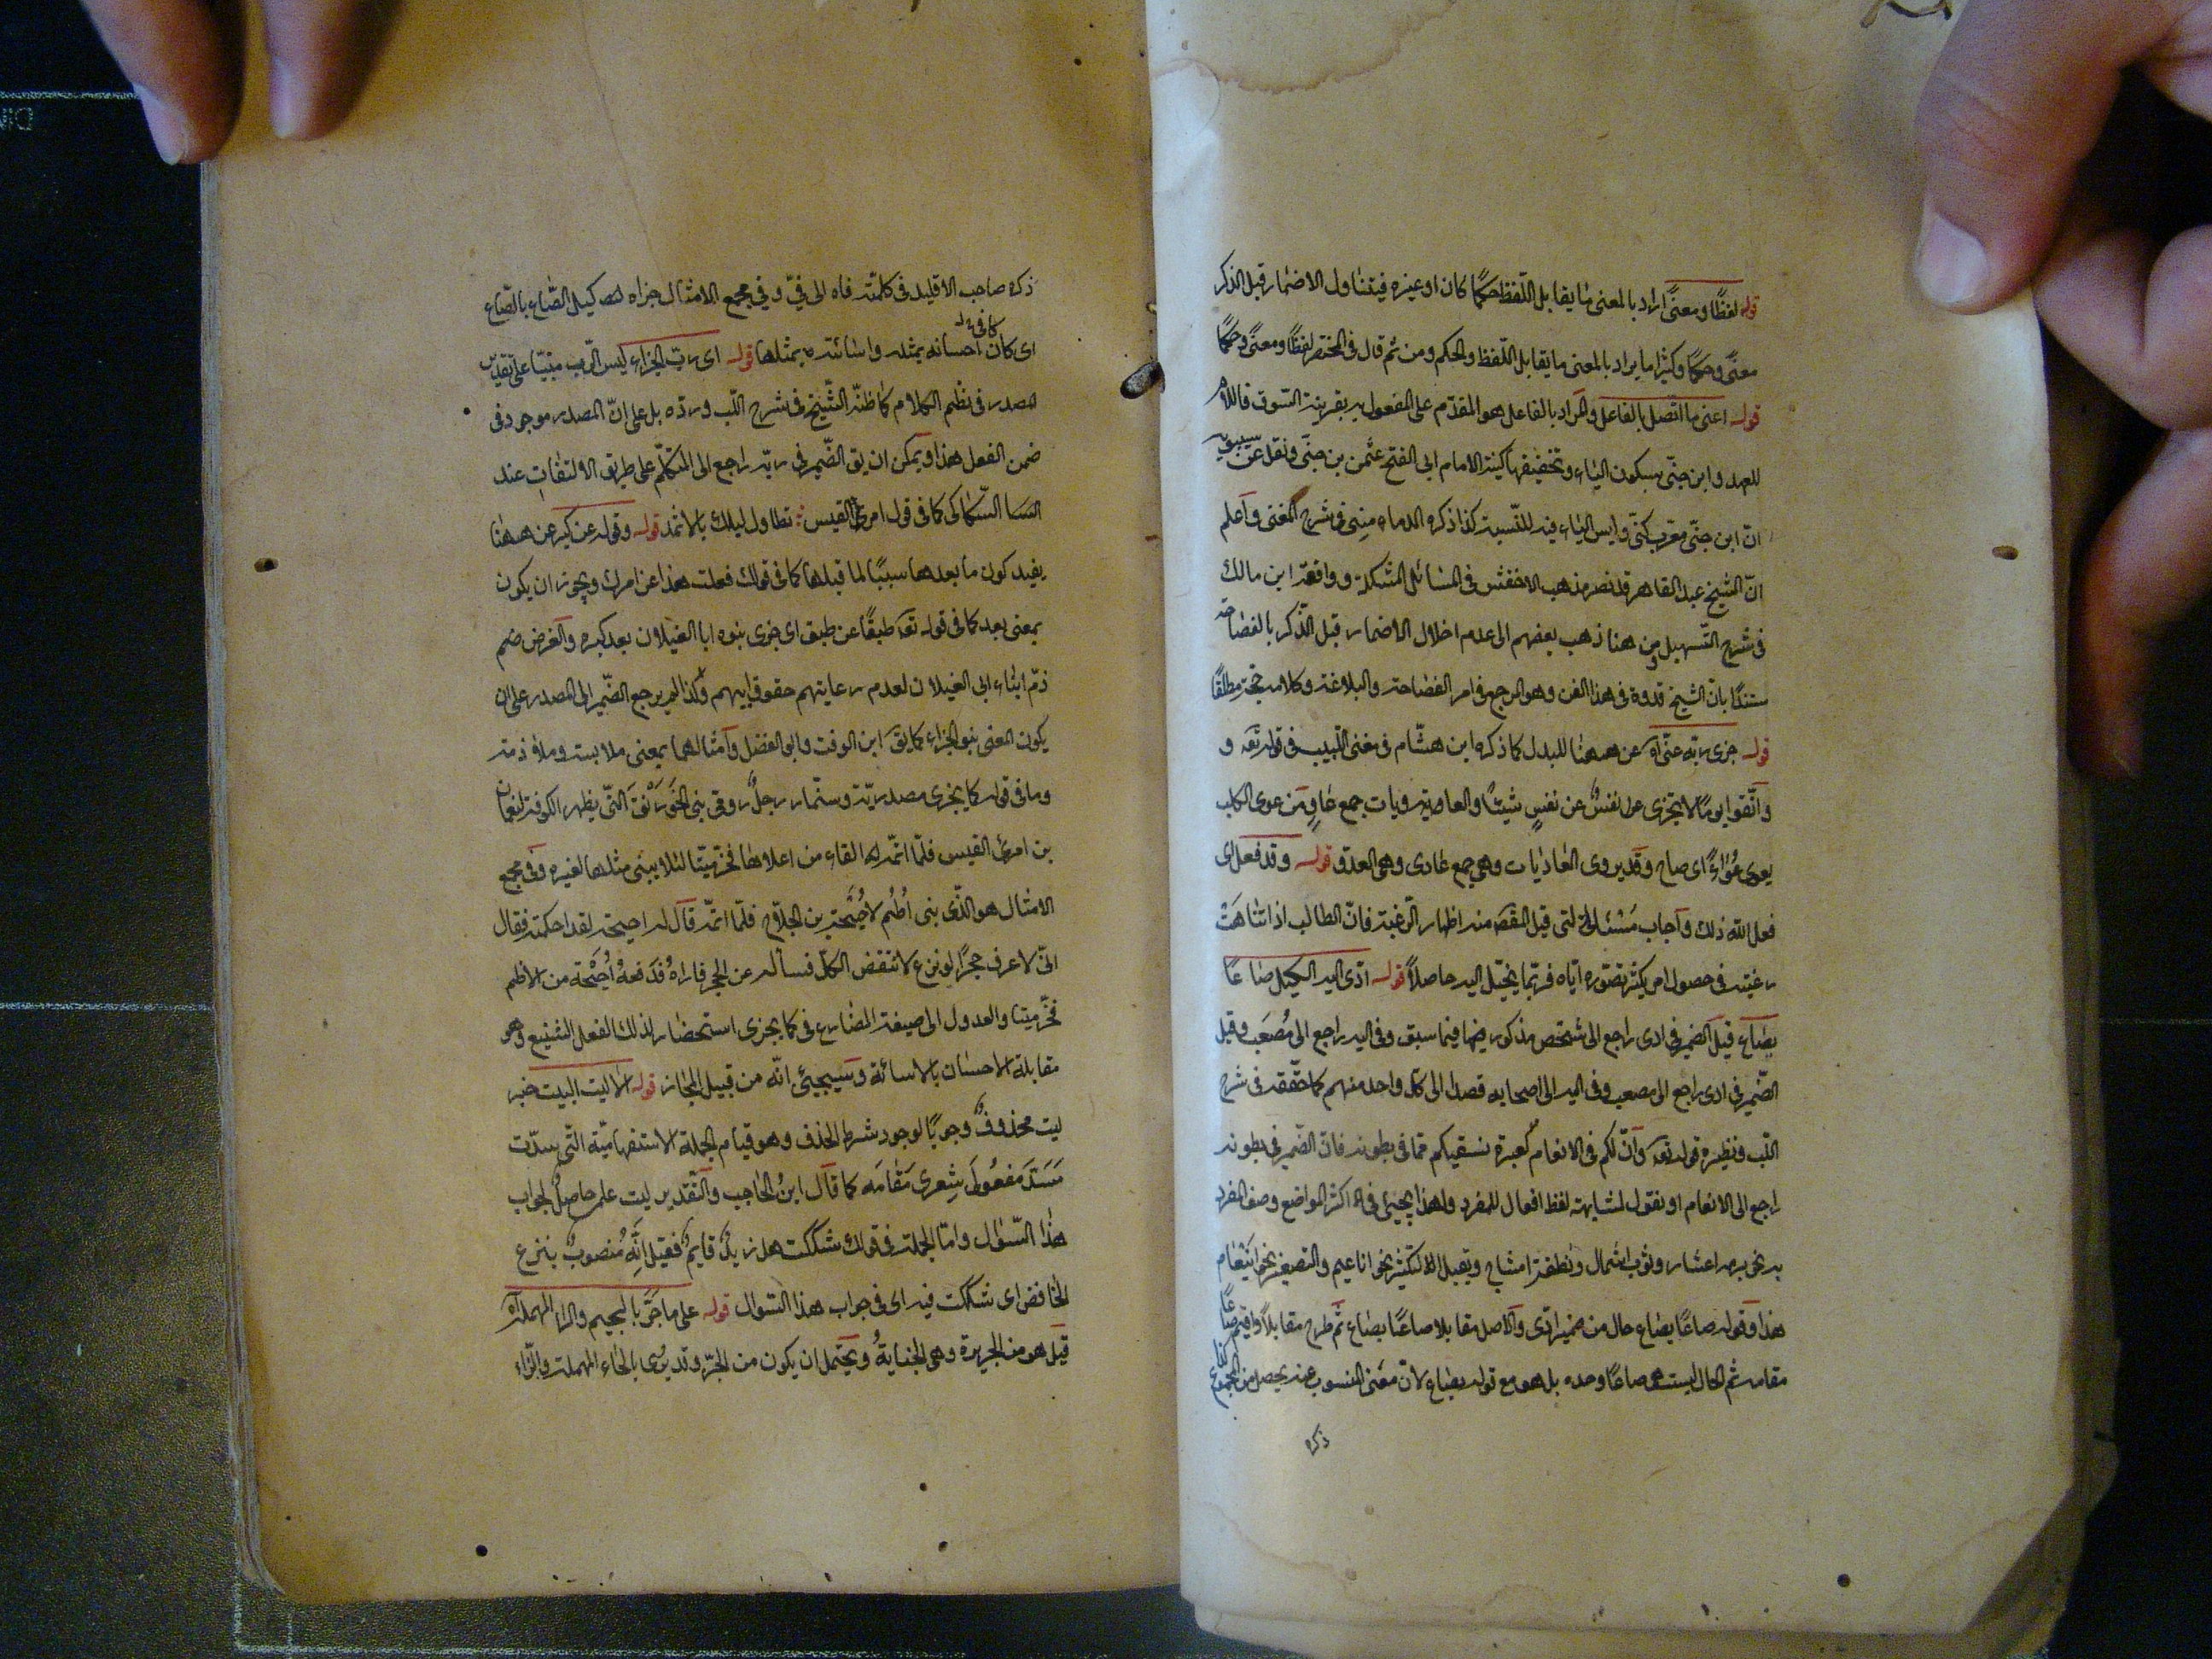 قوله لفظًا ومعنًى اراد بالمعنى ما يقابل اللّفظ حكمًا كان او غيره فيتناول الاضمار قبل الذكر
معنًى وحكمًا وكثيرًا ما يراد بالمعنى ما يقابل اللّفظ والحكم ومن ثم قال فى المختصر لفظًا ومعنًى وحكمًا
قوله اعنى ما اتّصل بالفاعل والمراد بالفاعل هو المقدّم على المفعول به بقرينة السوق فاللام
للعهد وابن جنّى بسكون الياء وتخفيفها كنية الامام ابى الفتح عثمن بن جنّى ونقل عن سيبويه
انّ ابن جنّى معرب كنّى وليس الياء فيه للنّسبة كذا ذكره الدمامينى فى شرح المغنى وآعلم
انّ الشيخ عبد القاهر قد نصر مذهب الاخفش فى المسائل المشكلة ووافقه ابن مالك
فى شرح التّسهيل ومن هنا ذهب بعضهم الى عدم اخلال الاضمار قبل الذّكر بالفصاحة
مستندًا بانّ الشيخ قدوة فى هذا الفن وهو المرجع فى امر الفصاحة والبلاغة وكلامه حجّة مطلقًا
قوله جزى ربّه عنّى آه عن ههنا للبدل كما ذكره ابن هشّام فى مغنى اللّبيب فى قوله تعه و
وآتّقوا يومًا لا تجزى نفسٌ عن نفسٍ شيئًا والعاويات جمع عاوٍ من عوى الكلب
يعوى عُوَاءً اى صاح وقد يروى العاديات وهى جمع عادى وهى العدوّ قوله وقد فعل اى
فعل الله ذلك وآجاب مسئلتى قيل المقصَ منه اظهار الرّغبة فانّ الطالب اذا تناهت
رغبته فى حصول امر يكثر تصّوره ايّاه فربّما يخيّل اليه حاصلاً قوله ادّى اليه الكيل صاعًا
بصاع قيل الضمير فى ادى راجع الى شخص مذكور فيما سبق وفى اليه راجع الى مُصعَب وقيل
الضّمير فى ادى راجع الى مصعب وفى اليه الى اصحابه قصدا الى كلّ واحد منهم كما حقّقه فى شرح
اللّب ونظيره قوله تعه وآنّ لكم فى الانعام لعبرة نسقيكم ممّا فى بطونه فانّ الضّمير فى بطونه
راجع الى الانعام او نقول لمشابهة لفظ افعال للمفرد ولهذا يجيئ فى اكثر المواضع وصف المفرد
به نحو برمة اعشار وثوب اشمال ونطفة امشاج ويقبل التكثير نحو اناعيم والتصغير نحو انيعام
هذا وقوله صاعًا بصاع حال من ضمير ادّى والاصل مقابلا صاعًا بصاع ثم طرح مقابلاً واقيم صاعًا
مقامه ثم الحال ليست هى صاعًا وحده بل هو مع قوله بصاع لانّ معنى المنسوب عنه يحصل من المجموع كذا
ذكره
ذكره صاحب الاقليد فى كلمته فاه الى فىّ وفى مجمع الامثال جزاه كيل الصّاع بالصّاع
كافى
اى كان احسانه بمثله واسائته بمثلها قوله اى ربّ الجزاء ليس الرّب مبنيّا على تقدير
المصدر فى نظم الكلام كما ظنّه الشّيخ فى شرح اللّب وردّه بل على انّ المصدر موجود فى
ضمن الفعل هذا ويمكن ان يق الضّمير فى ربّه راجع الى المتكلّم على طريق الالتفات عند
السّكاكى كما فى قول امرئ القيس تطاول ليلك بالاثمد قوله وقوله عن كبر عن ههنا
يفيد كون ما بعدها سببًا لما قبلها كما فى قولك فعلت هذا عن امرك ويجوز ان يكون
بمعنى بعد كما فى قوله تعه طبقًا عن طبق اى جزى بنوه ابا الغيلان بعد كبره والغرض ضم
ذمّ ابناء ابى الغيلان لعدم رعايتهم حقوق ابيهم وكذا لم يرجع الضّمير الى المصدر على ان
يكون المعنى بنو الجزاء كما يق ابن الوقت وابو الفضل وآمثالهما بمعنى ملابسته وملازمته
وما فى قوله كما يجزى مصدريّة وسنمّار رجلٌ رومى بنى الخَوَرْنَقَ الّتى بظهر الكوفة لنعمان
بن امرئ القيس فلمّا اتمّه القاه من اعلاها فخرّ ميّتا لئلا يبنى مثلها لغيره وفى مجمع
الامثال هو الّذى بنى اُطُم لاُحَيحة بن الجلاّح فلمّا اتمّه قال له احيحة لقد احكمته فقال
انّى لاعرف حجرًا لو نزع لانتقض الكلّ فسأله عن الحجر فاراهُ فدفعهُ اُحَيْحَة من الاطم
فخرّ ميتا والعدول الى صيغة المضارع فى كما يجزى استحضار لذلك الفعل الشنيع وهو
مقابلة الاحسان بالاسائة وسيجيئ انّه من قبيل المجاز قوله الا ليت البيت خبر
ليت محذوفٌ وجوبًا لوجود شرط الحذف وهو قيام الجملة الاستفهاميّة الّتى سدّت
مَسَدَّ مفعُولَى شِعرى مَقَامَه كما قال ابنُ الحاجب والتّقدير ليت علمى حاصلٌ بجواب
هذا السّؤال وامّا الجملة فى قولك شككت هل زيدٌ قايمٌ فقيل اِنَّهُ مُنصوبٌ بنزع
الخافض اى شككت فيه اى فى جواب هذا السّؤال قوله على ما جَرَّ بالجيم والراء المهملة آه
قيل هو من الجريرة وهى الجنايةُ ويحتمل ان يكون من الجرّ وقد يروى بالحاء المهملة والزّاء